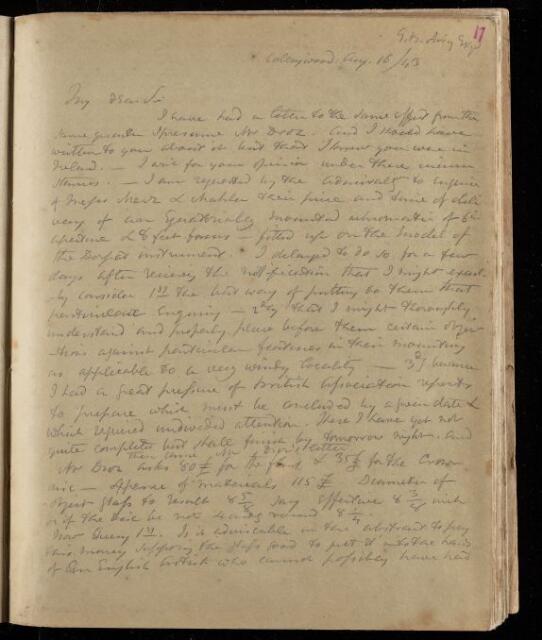 17
G. B. Airy Esq
Collingwood Aug. 16/43
My dear Sir
I have had a letter to the same effect from the
same quarter I presume Mr Dron. And I should have
written to you about it but that I knew you were in
Ireland. — I ask for your opinion under these circum
stances. — I am requested by the Admiralty to enquire
of Messrs Merz & Mahler their price and time of deli
very of an Equatorially mounted achromatic of 6 in
aperture & 8 feet focus — fitted up on the model of
the Dorpat instrument. I delayed to do so for a few
days after receiving the notification that I might
consider 1st the best way of putting to them that
particular enquiry — 2dly that I might thoroughly
understand and properly place before them certain objec
tions against particular features in their mounting
as applicable to a very windy locality — 3dly because
I had a great pressure of British Association reports
to prepare which must be concluded by a given date &
which required undivided attention. These I have yet not
quite completed but shall finish by tomorrow night. and
then came Mr Dron's letter
Mr Dron asks 80 £ for the flint & 35 £ for the Crown
disc — Expense of materials 115 £ Diameter of
object glass to result 8 5/8 say effective 8 3/8 inch
or if the disc be not round 8 1/4
Now Query 1st. Is it advisable in the abstract to pay
this money supposing the glass good to put it into the hands
of an English artist who cannot possibly have had